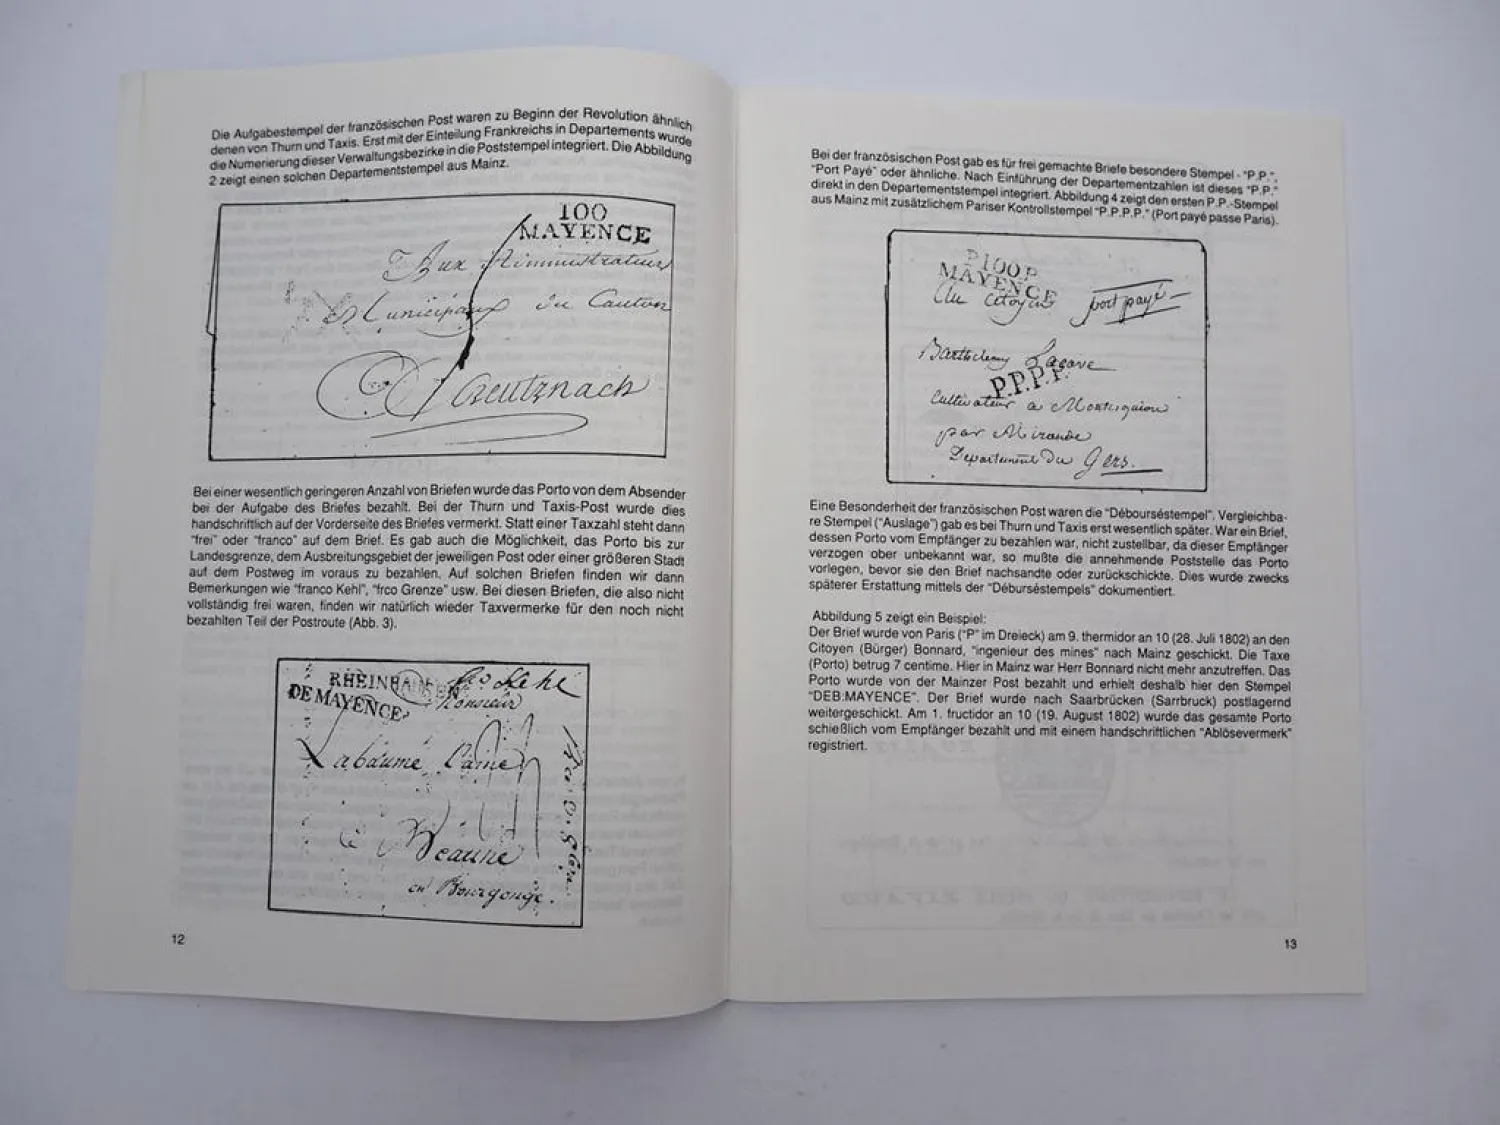 Die Aufgabestempel der französischen Post waren zu Beginn der Revolution ähnlich
denen von Thurn und Taxis. Erst mit der Einteilung Frankreichs in Departements wurde
die Numerierung dieser Verwaltungsbezirke in die Poststempel integriert. Die Abbildung
2 zeigt einen solchen Departementstempel aus Mainz.
100
MAYENCE
Aux Administrateurs
Municipaux du Canton
Creutznach
Bei einer wesentlich geringeren Anzahl von Briefen wurde das Porto von dem Absender
bei der Aufgabe des Briefes bezahlt. Bei der Thurn und Taxis-Post wurde dies
handschriftlich auf der Vorderseite des Briefes vermerkt. Statt einer Taxzahl steht dann
"frei" oder "franco" auf dem Brief. Es gab auch die Möglichkeit, das Porto bis zur
Landesgrenze, dem Ausbreitungsgebiet der jeweiligen Post oder einer größeren Stadt
auf dem Postweg im voraus zu bezahlen. Auf solchen Briefen finden wir dann
Bemerkungen wie "franco Kehl", "frco Grenze" usw. Bei diesen Briefen, die also nicht
vollständig frei waren, finden wir natürlich wieder Taxvermerke für den noch nicht
bezahlten Teil der Postroute (Abb. 3).
RHEINHAUSEN
DE MAYENCE
Kehl
Monsieur
Labaume L'ainé
à Beaune
en Bourgogne.
12
Bei der französischen Post gab es für frei gemachte Briefe besondere Stempel - "P.P.",
"Port Payé" oder ähnliche. Nach Einführung der Departementzahlen ist dieses "P.P."
direkt in den Departementstempel integriert. Abbildung 4 zeigt den ersten P.P.-Stempel
aus Mainz mit zusätzlichem Pariser Kontrollstempel "P.P.P.P." (Port payé passe Paris).
P100P
MAYENCE
Au Citoyen port payé
Barthelemy Lacave
P.P.P.P.
Cultivateur a Montesquiou
par Mirande
Departement Du Gers.
Eine Besonderheit der französischen Post waren die "Débourséstempel". Vergleichba-
re Stempel ("Auslage") gab es bei Thurn und Taxis erst wesentlich später. War ein Brief,
dessen Porto vom Empfänger zu bezahlen war, nicht zustellbar, da dieser Empfänger
verzogen ober unbekannt war, so mußte die annehmende Poststelle das Porto
vorlegen, bevor sie den Brief nachsandte oder zurückschickte. Dies wurde zwecks
späterer Erstattung mittels der "Débursèstempels" dokumentiert.
Abbildung 5 zeigt ein Beispiel:
Der Brief wurde von Paris ("P" im Dreieck) am 9. thermidor an 10 (28. Juli 1802) an den
Citoyen (Bürger) Bonnard, "ingenieur des mines" nach Mainz geschickt. Die Taxe
(Porto) betrug 7 centime. Hier in Mainz war Herr Bonnard nicht mehr anzutreffen. Das
Porto wurde von der Mainzer Post bezahlt und erhielt deshalb hier den Stempel
"DEB:MAYENCE". Der Brief wurde nach Saarbrücken (Sarrbruck) postlagernd
weitergeschickt. Am 1. fructidor an 10 (19. August 1802) wurde das gesamte Porto
schießlich vom Empfänger bezahlt und mit einem handschriftlichen "Ablösevermerk"
registriert.
13